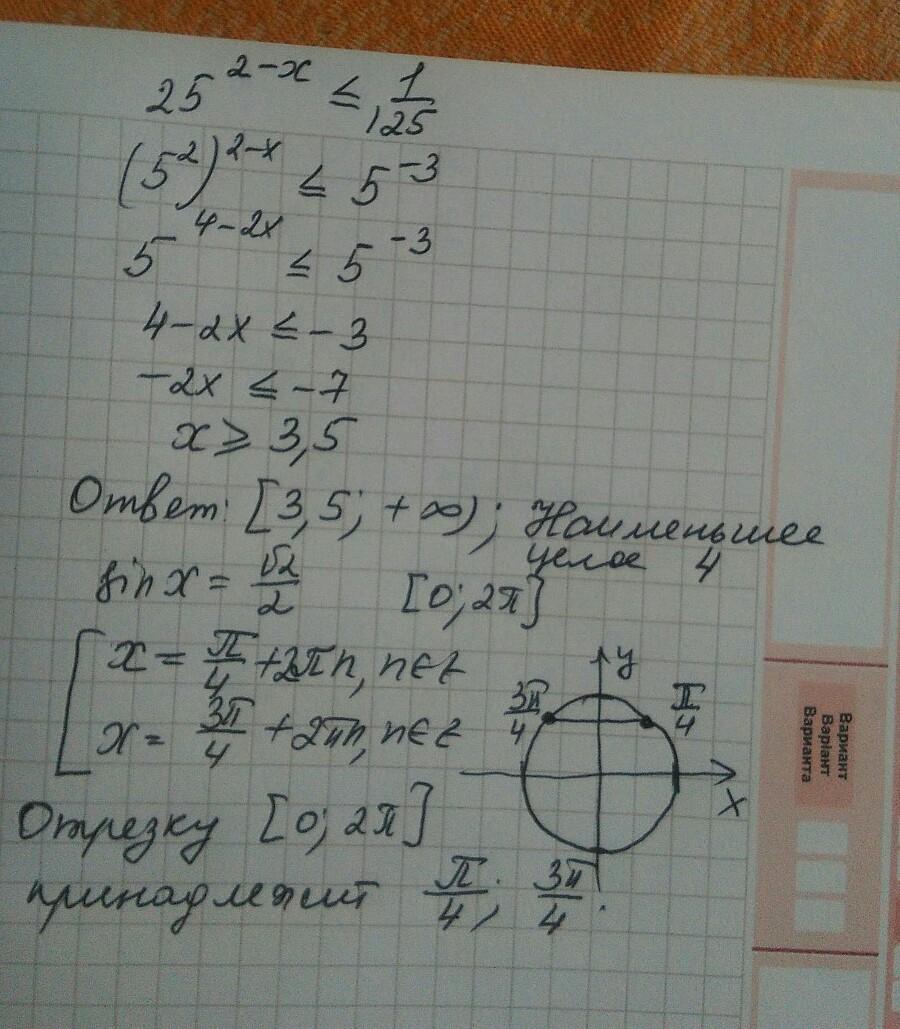 25^{2-x} ≤ 1/125
(5^2)^{2-x} ≤ 5^{-3}
5^{4-2x} ≤ 5^{-3}
4-2x ≤ -3
-2x ≤ -7
x ≥ 3,5
Ответ: [3,5; +∞); Наименьшее
целое 4
sin x = √2/2 [0; 2π]
x = π/4 + 2πn, n∈z
x = 3π/4 + 2πn, n∈z
y
3π/4
π/4
x
Отрезку [0; 2π]
принадлежит π/4; 3π/4.
Вариант
Варіант
Варианта